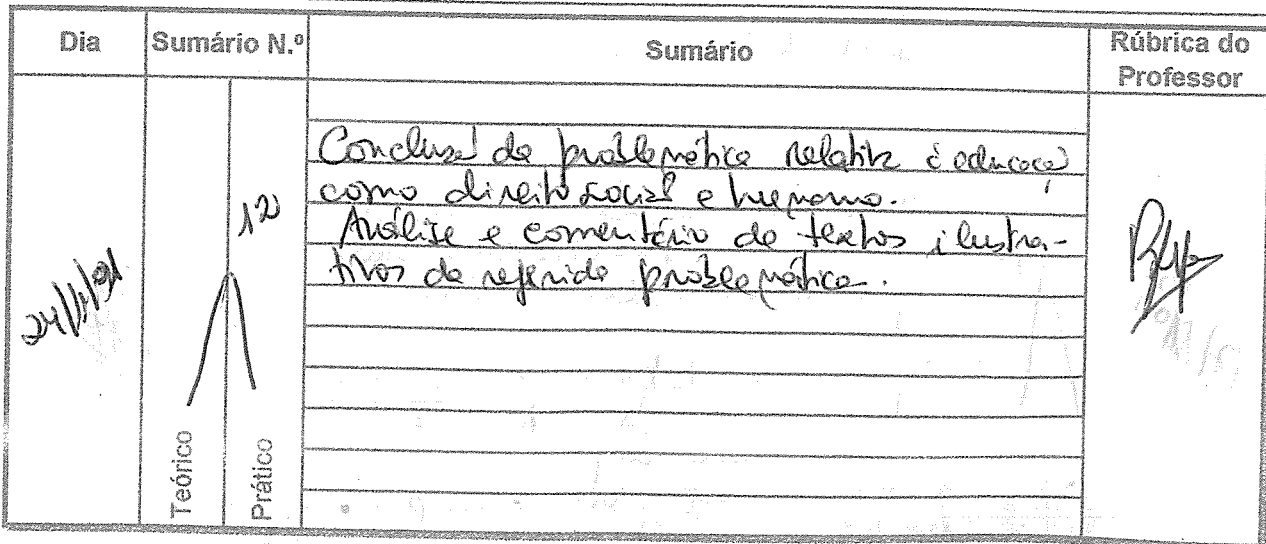 Dia Sumário N.º Sumário Rúbrica do Professor
12
Conclusão da problemática relativa à educação
como direito social e humano.
Análise e comentário de textos ilustra-
tivos da referida problemática.
Teórico
Prático